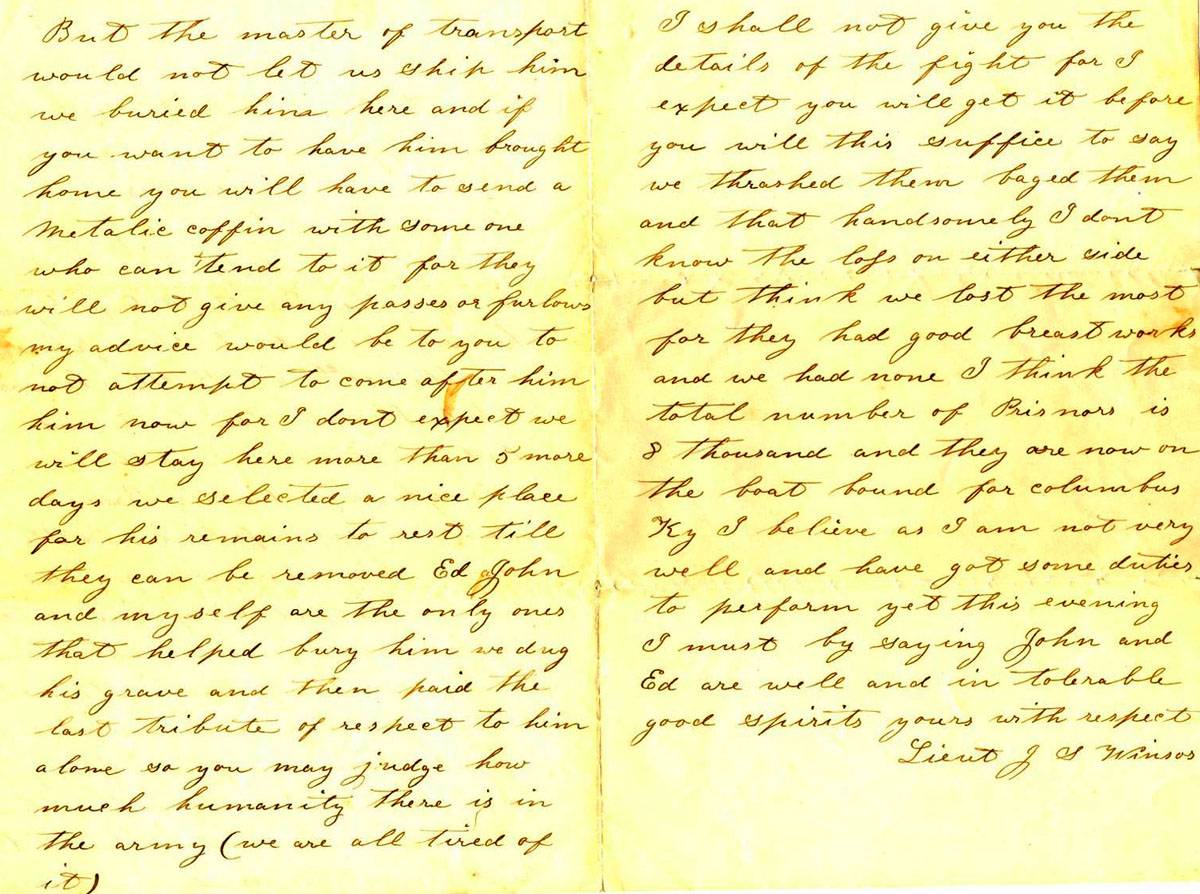 But the master of transport
would not let us ship him
we buried him here and if
you want to have him brought
home you will have to send a
Metalic coffin with some one
who can 'tend to it for they
will not give any passes or furlows
my advice would be to you to
not attempt to come after him
him now for I dont expect we
will stay here more than 5 more
days we selected a nice place
for his remains to rest till
they can be removed Ed John
and myself are the only ones
that helped bury him we dug
his grave and then paid the
last tribute of respect to him
alone so you may judge how
much humanity there is in
the army (we are all tired of
it)
I shall not give you the
details of the fight for I
expect you will get it before
you will this suffice to say
we thrashed them baged them
and that handsomely I dont
know the loss on either side
but think we lost the most
for they had good breast works
and we had none I think the
total number of Prisnors is
8 thousand and they are now on
the boat bound for columbus
Ky I believe as I am not very
well and have got some duties
to perform yet this evening
I must by saying John and
Ed are well and in tolerable
good spirits yours with respect
Lieut J S Winsor